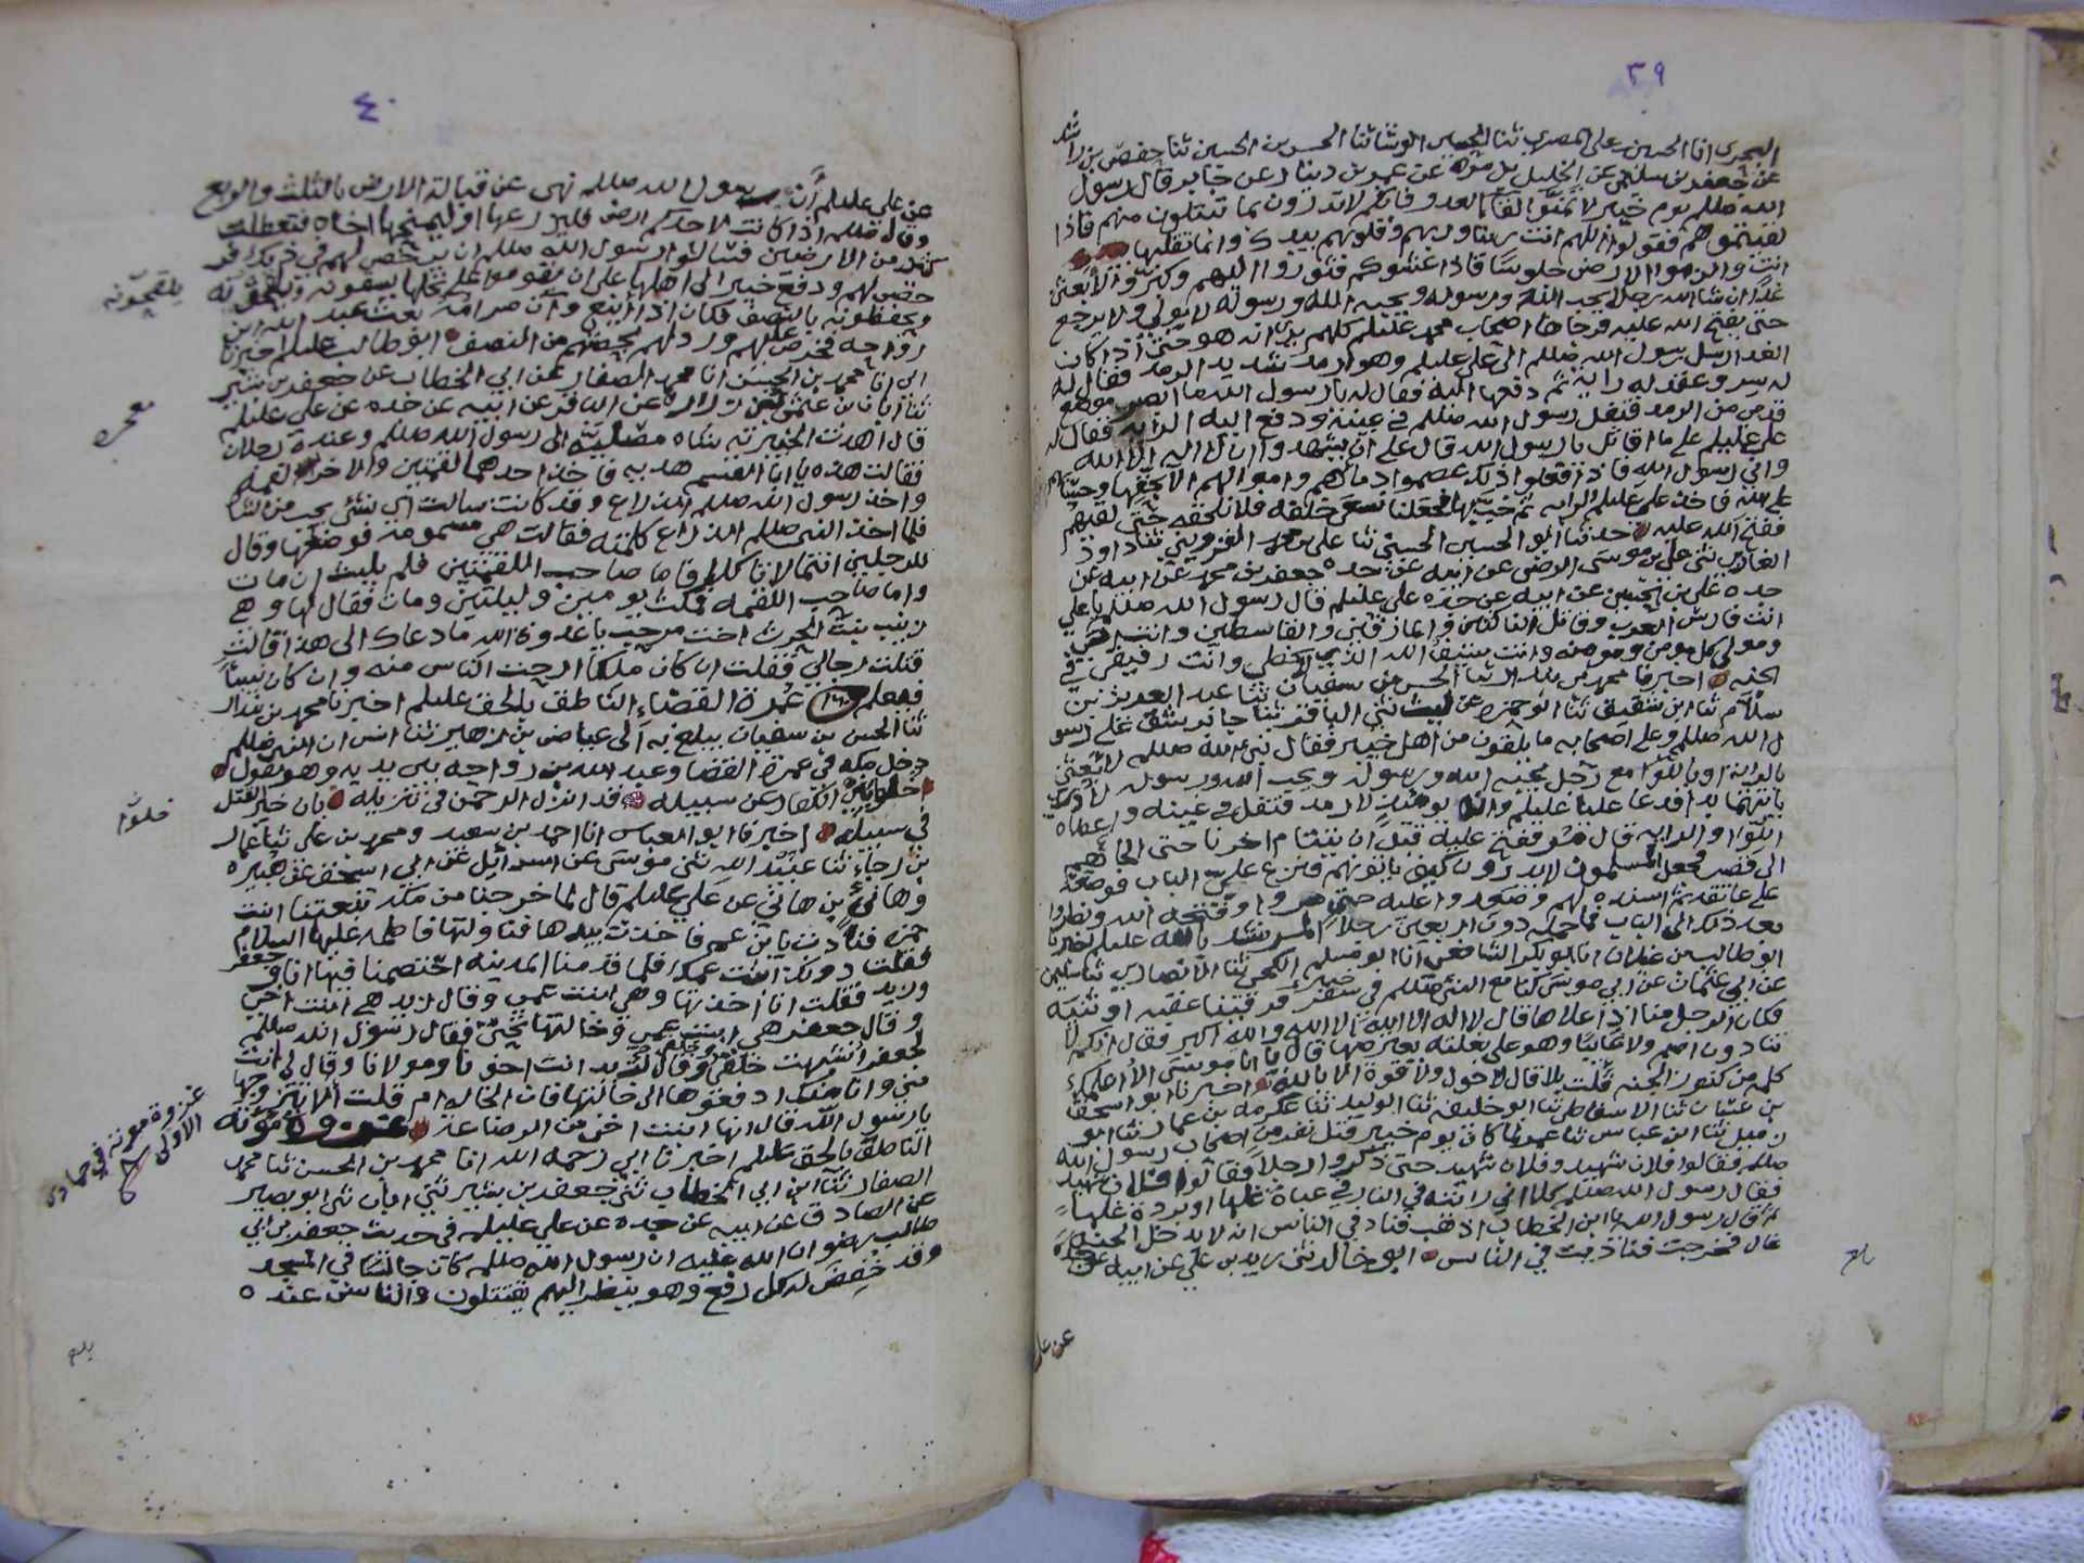 ٣٩
البحري انا الحسين بن علي المصري ثنا الحسن بن الحسين ثنا حفص بن راشد
عن جعفر بن سليمان عن الخليل بن مرة عن عمرو بن دينار عن جابر قال رسول
الله صللم يوم خيبر لا تمنوا لقا العدو فانكم لا تدرون بما تبتلون منهم فاذا
لقيتموهم فقولوا اللهم انت ربنا وربهم وقلوبهم بيدك وانما تقلبها
انت والزموا الارض جلوسًا فاذا غشوكم فثوروا اليهم وكبروا لابعثن
غدًا ان شا الله رجلا يحب الله ورسوله ويحبه الله ورسوله لا يولي ولا يرجع
حتى يفتح الله عليه فرجاها اصحاب محمد عليلم كلهم يرى انه هو حتى اذا كان
الغد ارسل رسول الله صللم الى علي عليلم وهو ارمد شديد الرمد فقال له
سر وعقد له راية ثم دفعها اليه فقال له يا رسول الله ما ابصر موضع
قدمي من الرمد فتفل رسول الله صللم في عينيه ودفع اليه الراية فقال له
علي عليلم على ما اقاتل يا رسول الله قال على ان يشهدوا ان لا اله الا الله
واني رسول الله فاذا فعلوا ذلك عصموا دماهم واموالهم الا بحقها وحسابهم
على الله فاخذ علي عليلم الراية ثم خب بها فجعلنا نسعى خلفه فلا نلحقه حتى لقيهم
ففتح الله عليه حدثنا ابو الحسين الحسني ثنا علي بن محمد القزويني ثنا داود
الغازي ثني علي بن موسى الرضى عن ابيه عن جده جعفر بن محمد عن ابيه عن
جده علي بن الحسين عن ابيه عن جده علي عليلم قال رسول الله صللم يا علي
انت فارس العرب وقاتل الناكثين والمارقين والقاسطين وانت اخي
ومولى كل مومن ومومنه وانت سيف الله الذي لا يخطي وانت رفيقي في
الجنه اخبرنا محمد بن بندار ثنا الحسن بن سفيان ثنا عبد العزيز بن
سلام ثنا ابن شقيق ثنا ابو حمزه عن ليث ثني الباقر ثنا جابر شق على رسو
ل الله صللم وعلى اصحابه ما يلقون من اهل خيبر فقال نبي الله صللم لابعثن
بالراية او باللوا مع رجل يحبه الله ورسوله ويحب الله ورسوله لا ادري
بايتهما بدا فدعا عليا عليلم وانه يومئذٍ لارمد فتفل في عينه واعطاه
اللوا او الراية قال ففتح عليه قبل ان يتتام اخرنا حتى الجاهم
الى قصر فجعل المسلمون لا يدرون كيف ياتونهم فنزع علي الباب فوضعه
على عاتقه ثم اسنده لهم وصعدوا عليه حتى مروا وفتحه الله ونظروا
بعد ذلك الى الباب فما حمله دون اربعين رجلاً المرشد بالله عليلم اخبرنا
ابو طالب بن غيلان انا ابو بكر الشافعي انا ابو مسلم الكجي ثنا الانصاري ثنا سليمن
عن ابي عثمان عن ابي موسى كنا مع النبي صللم في سفر خيبر فرقينا عقبه او ثنيه
فكان الرجل منا اذا علاها قال لا اله الا الله والله اكبر فقال انكم لا
تنادون اصم ولا غائبًا وهو على بغلته يعترضها قال يا ابا موسى الا اعلمك
كلمه من كنوز الجنه قلت بلا قال لا حول ولا قوة الا بالله اخبرنا ابو اسحق
بن عثمان ثنا الاسفاطي ثنا ابو خليفه ثنا ابو الوليد ثنا عكرمه بن عمار ثنا ابو
زميل ثنا ابن عباس ثنا عمر لما كان يوم خيبر قتل نفر من اصحاب رسول الله
صللم فقالوا فلان شهيد وفلان شهيد حتى ذكروا رجلاً فقالوا فلان شهيد
فقال رسول الله صللم كلا اني رايته في النار في عباة غلها او بردة غلها
ثم قال رسول الله يا ابن الخطاب اذهب فناد في الناس انه لا يدخل الجنه
قال فخرجت فناديت في الناس ابو خالد ثني زيد بن علي عن ابيه عن جده
عن علي
٤٠
عن علي عليلم أن رسول الله صللم نهى عن قبالة الارض بالثلث والربع
وقال صللم اذا كانت لاحدكم ارض فليزرعها او ليمنحها اخاه فتعطلت
كثير من الارضين فسالوا رسول الله صللم ان يرخص لهم في ذلك فر
خص لهم ودفع خيبر الى اهلها على ان يقوموا على نخلها يسقونه ويلقحونه
ويحفظونه بالنصف فكان اذا اينع وآن صرامه بعث عبد الله ابن
رواحه فخرص عليهم ورد لهم بحصتهم من النصف ابو طالب عليلم اخبرنا
ابي انا محمد بن الحسن انا محمد الصفار عن ابي الخطاب عن جعفر بن بشير
ثنا ابان بن عثمن عن زرارة عن الباقر عن ابيه عن جده عن علي عليلم
قال اهدت الخيبرية شاه مصلية الى رسول الله صللم وعنده رجلان
فقالت هذه يا ابا القسم هديه فاخذ احدهما لقمتين والاخر لقمه
واخذ رسول الله صللم الذراع وقد كانت سالت اي شئ يحب من الشاة
فلما اخذ النبي صللم الذراع كلمته فقالت هي مسمومة فوضعها وقال
للرجلين انتما لا تاكلا فاما صاحب اللقمتين فلم يلبث ان مات
واما صاحب اللقمه فمكث يومين وليلتين ومات فقال لها وهي
زينب بنت الحرث اخت مرحب يا عدوة الله ما دعاك الى هذا قالت
قتلت رجالي فقلت ان كان ملكا ارحت الناس منه وان كان نبيًّا
فسيعلم عُمرة القضاء الناطق بالحق عليلم اخبرنا محمد بن بندار
ثنا الحسن بن سفيان يبلغ به الى عياض بن زهير ثنا انس ان النبي صللم
دخل مكه في عمرة القضا وعبد الله بن رواحه بين يديه وهو يقول
خلوا بني الكفار عن سبيله قد انزل الرحمن في تنزيله بان خير القتل
في سبيله اخبرنا ابو العباس انا احمد بن سعيد ومحمد بن علي ثنا عمار
بن رجاء ثنا عبيد الله بن موسى عن اسرائيل عن ابي اسحق عن هبيره
وهانئ بن هانئ عن علي عليلم قال لما خرجنا من مكه تبعتنا ابنت
حمزه فنادت يا بن عم فاخذت بيدها فناولتها فاطمه عليها السلام
فقلت دونك ابنت عمك فلما قدمنا المدينه اختصمنا فيها انا وجعفر
وزيد فقلت انا اخذتها وهي ابنت عمي وقال زيد هي ابنت اخي
وقال جعفر هي ابنت عمي وخالتها تحتي فقال رسول الله صللم
لجعفر اشبهت خلقي وخلقي وقال لزيد انت اخونا ومولانا وقال لي انت
مني وانا منك ادفعوها الى خالتها فان الخاله ام قلت ألا تزوجها
يا رسول الله قال انها ابنت اخي من الرضاعه غزوة مؤته
الناطق بالحق عليلم اخبرنا ابي رحمه الله انا محمد بن الحسن ثنا محمد
الصفار ثنا ابن ابي الخطاب ثني جعفر بن بشير ثني ابان ثني ابو بصير
عن الصادق عن ابيه عن جده عن علي عليلم في حديث جعفر بن ابي
طالب رضوان الله عليه ان رسول الله صللم كان جالسًا في المسجد
وقد خُفِضَ له كل رفع وهو ينظر اليهم يقتتلون والناس عنده
يلقحونه
خلوا
غزوة موته في جمادى
الاولى